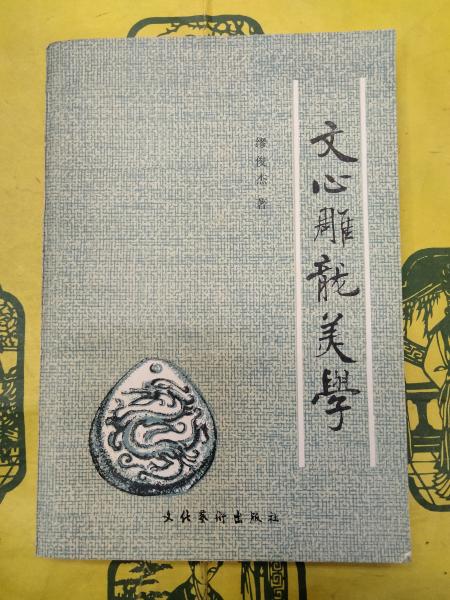 文心雕龙美學
缪俊杰 著
文化藝術出版社